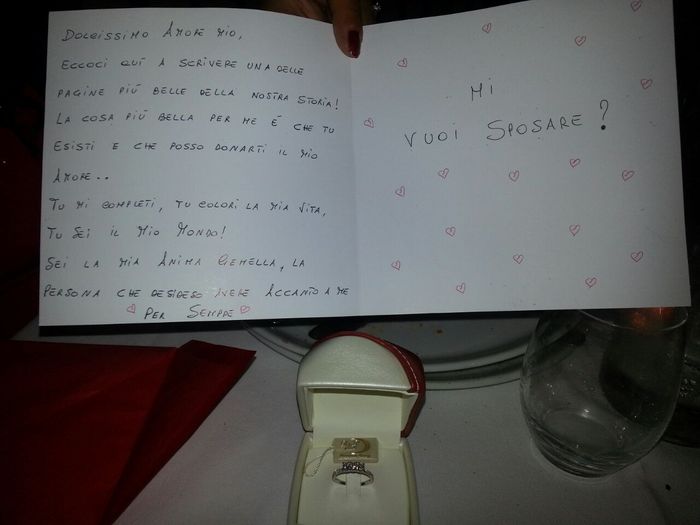 DOLCISSIMO AMORE MIO,
ECCOCI QUÍ A SCRIVERE UNA DELLE
PAGINE PIÚ BELLE DELLA NOSTRA STORIA!
LA COSA PIÚ BELLA PER ME É CHE TU
ESISTI E CHE POSSO DONARTI IL MIO
AMORE..
TU MI COMPLETI, TU COLORI LA MIA VITA,
TU SEI IL MIO MONDO!
SEI LA MIA ANIMA GEMELLA, LA
PERSONA CHE DESIDERO AVERE ACCANTO A ME
PER SEMPRE
MI
VUOI SPOSARE?